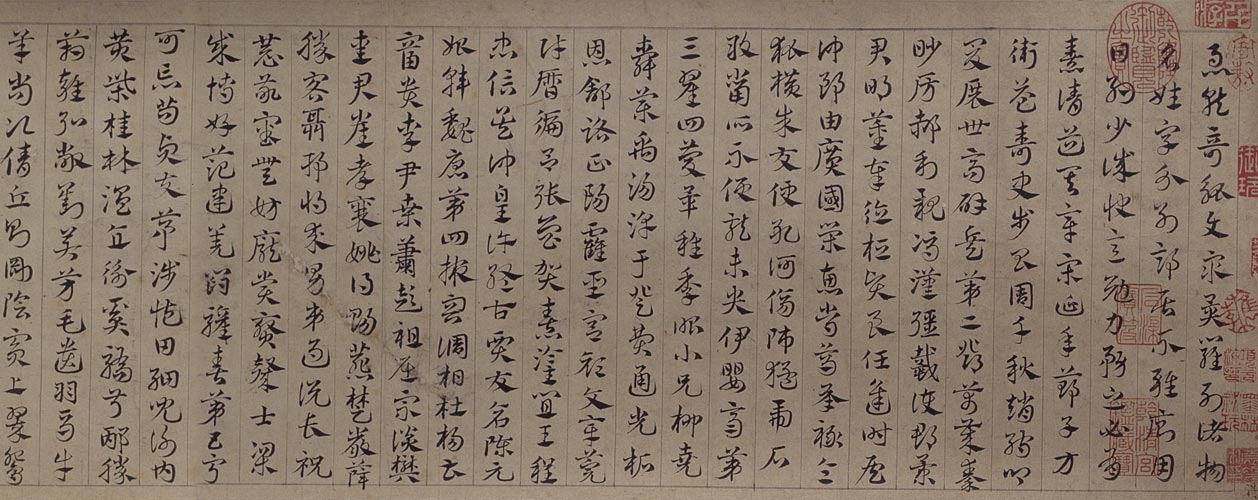 急就奇觚與眾異羅列諸物
名姓字分別部居不雜廁用
日約少誠快意勉力務之必有
憙請道其章宋延年鄭子方
衛益壽史步昌周千秋趙孺卿
爰展世高辟兵第二鄧萬歲秦
眇房郝利親馮漢彊戴護郡景
君明董奉德桓賢良任逢時侯
仲郎由廣國榮惠常烏承祿令
狐橫朱交便孔何傷師猛虎石
敢當所不侵龍未央伊嬰齊第
三翟回慶畢稚季昭小兄柳堯
舜藥禹湯淳于登費通光柘
恩舒路正陽霍聖宮顏文章莞
財曆偏呂張魯賀憙灌宜王程
忠信吳仲皇許終古賈友倉陳元
始韓魏唐第四掖容調柏杜楊曹
富貴李尹桑蕭彭祖屈宗談樊
愛君崔孝襄姚得賜燕楚嚴薛
勝客聶邗將求男弟過說長祝
恭敬審無妨龐賞贛來士梁
成博好范建羌閻驩喜第五甯
可忘苟貞夫茅涉臧田細兒謝內
黃柴桂林溫直衡奚驕叔邴勝
箱雍弘敞劉若芳毛遺羽馬牛
羊尚次倩丘則剛陰賓上翠鴛